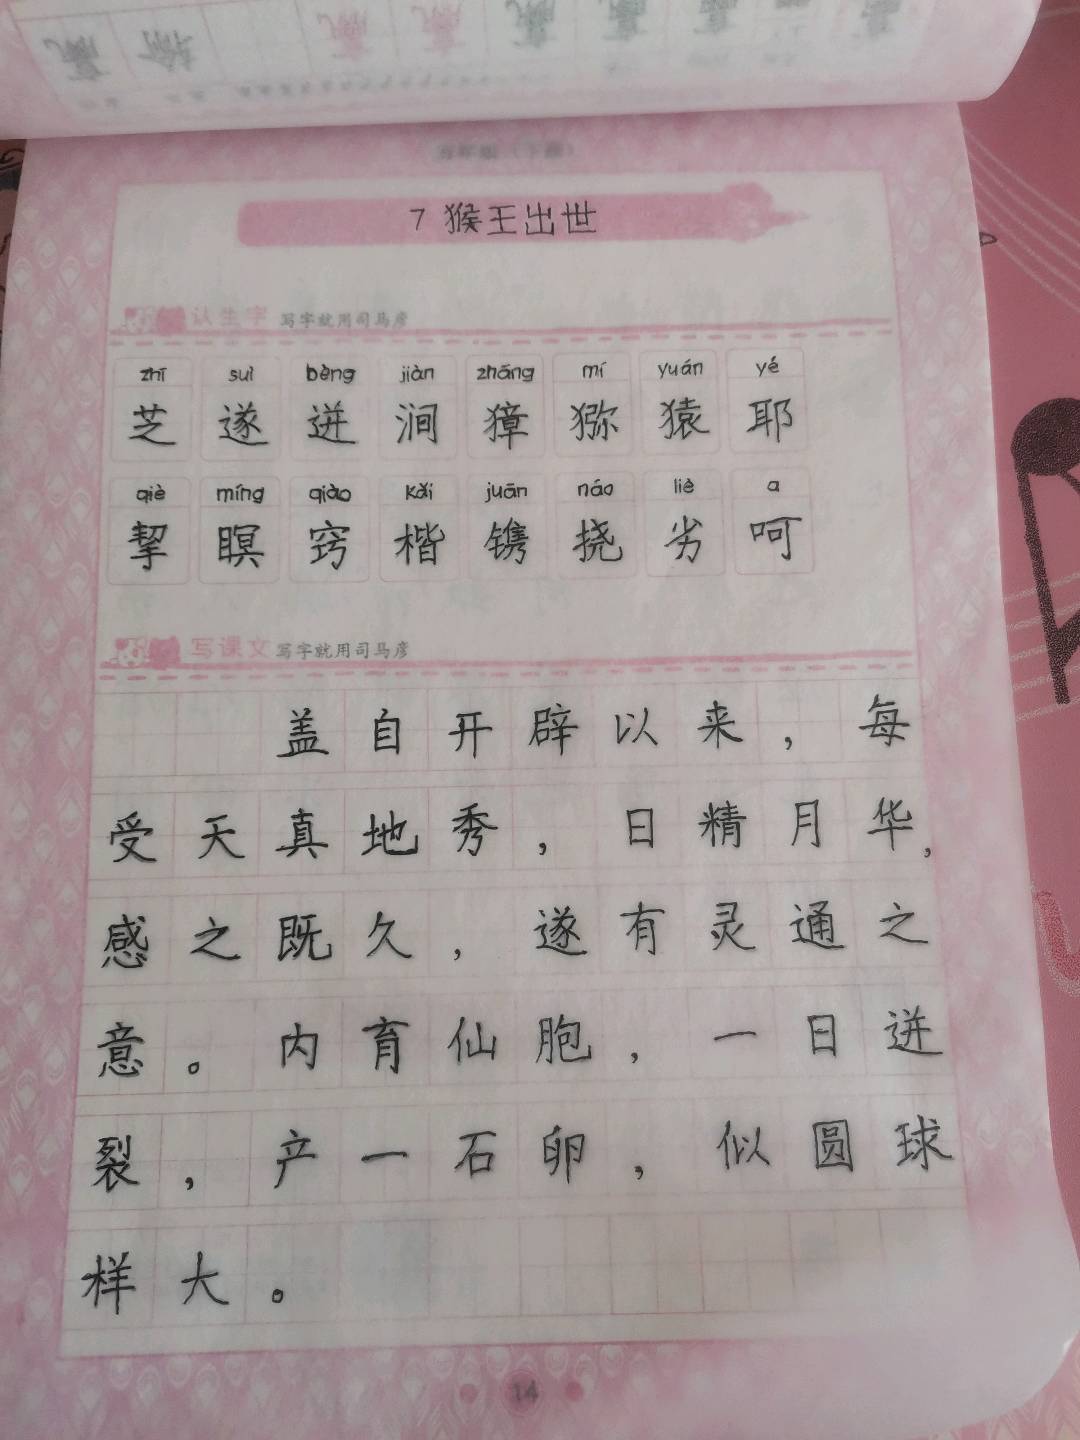 7 猴王出世
认生字 写字就用司马彦
zhī suì bèng jiàn zhāng mí yuán yé
芝 遂 迸 涧 獐 猕 猿 耶
qiè míng qiào kǎi juān náo liè a
挈 瞑 窍 楷 镌 挠 劣 呵
写课文 写字就用司马彦
盖自开辟以来，每
受天真地秀，日精月华，
感之既久，遂有灵通之
意。内育仙胞，一日迸
裂，产一石卵，似圆球
样大。
14